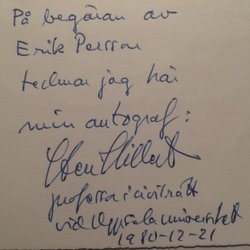 På begäran av
Erik Persson
tecknar jag här
min autograf:
Sten Hillert
professor i civilrätt
vid Uppsala universitet
1980-12-21